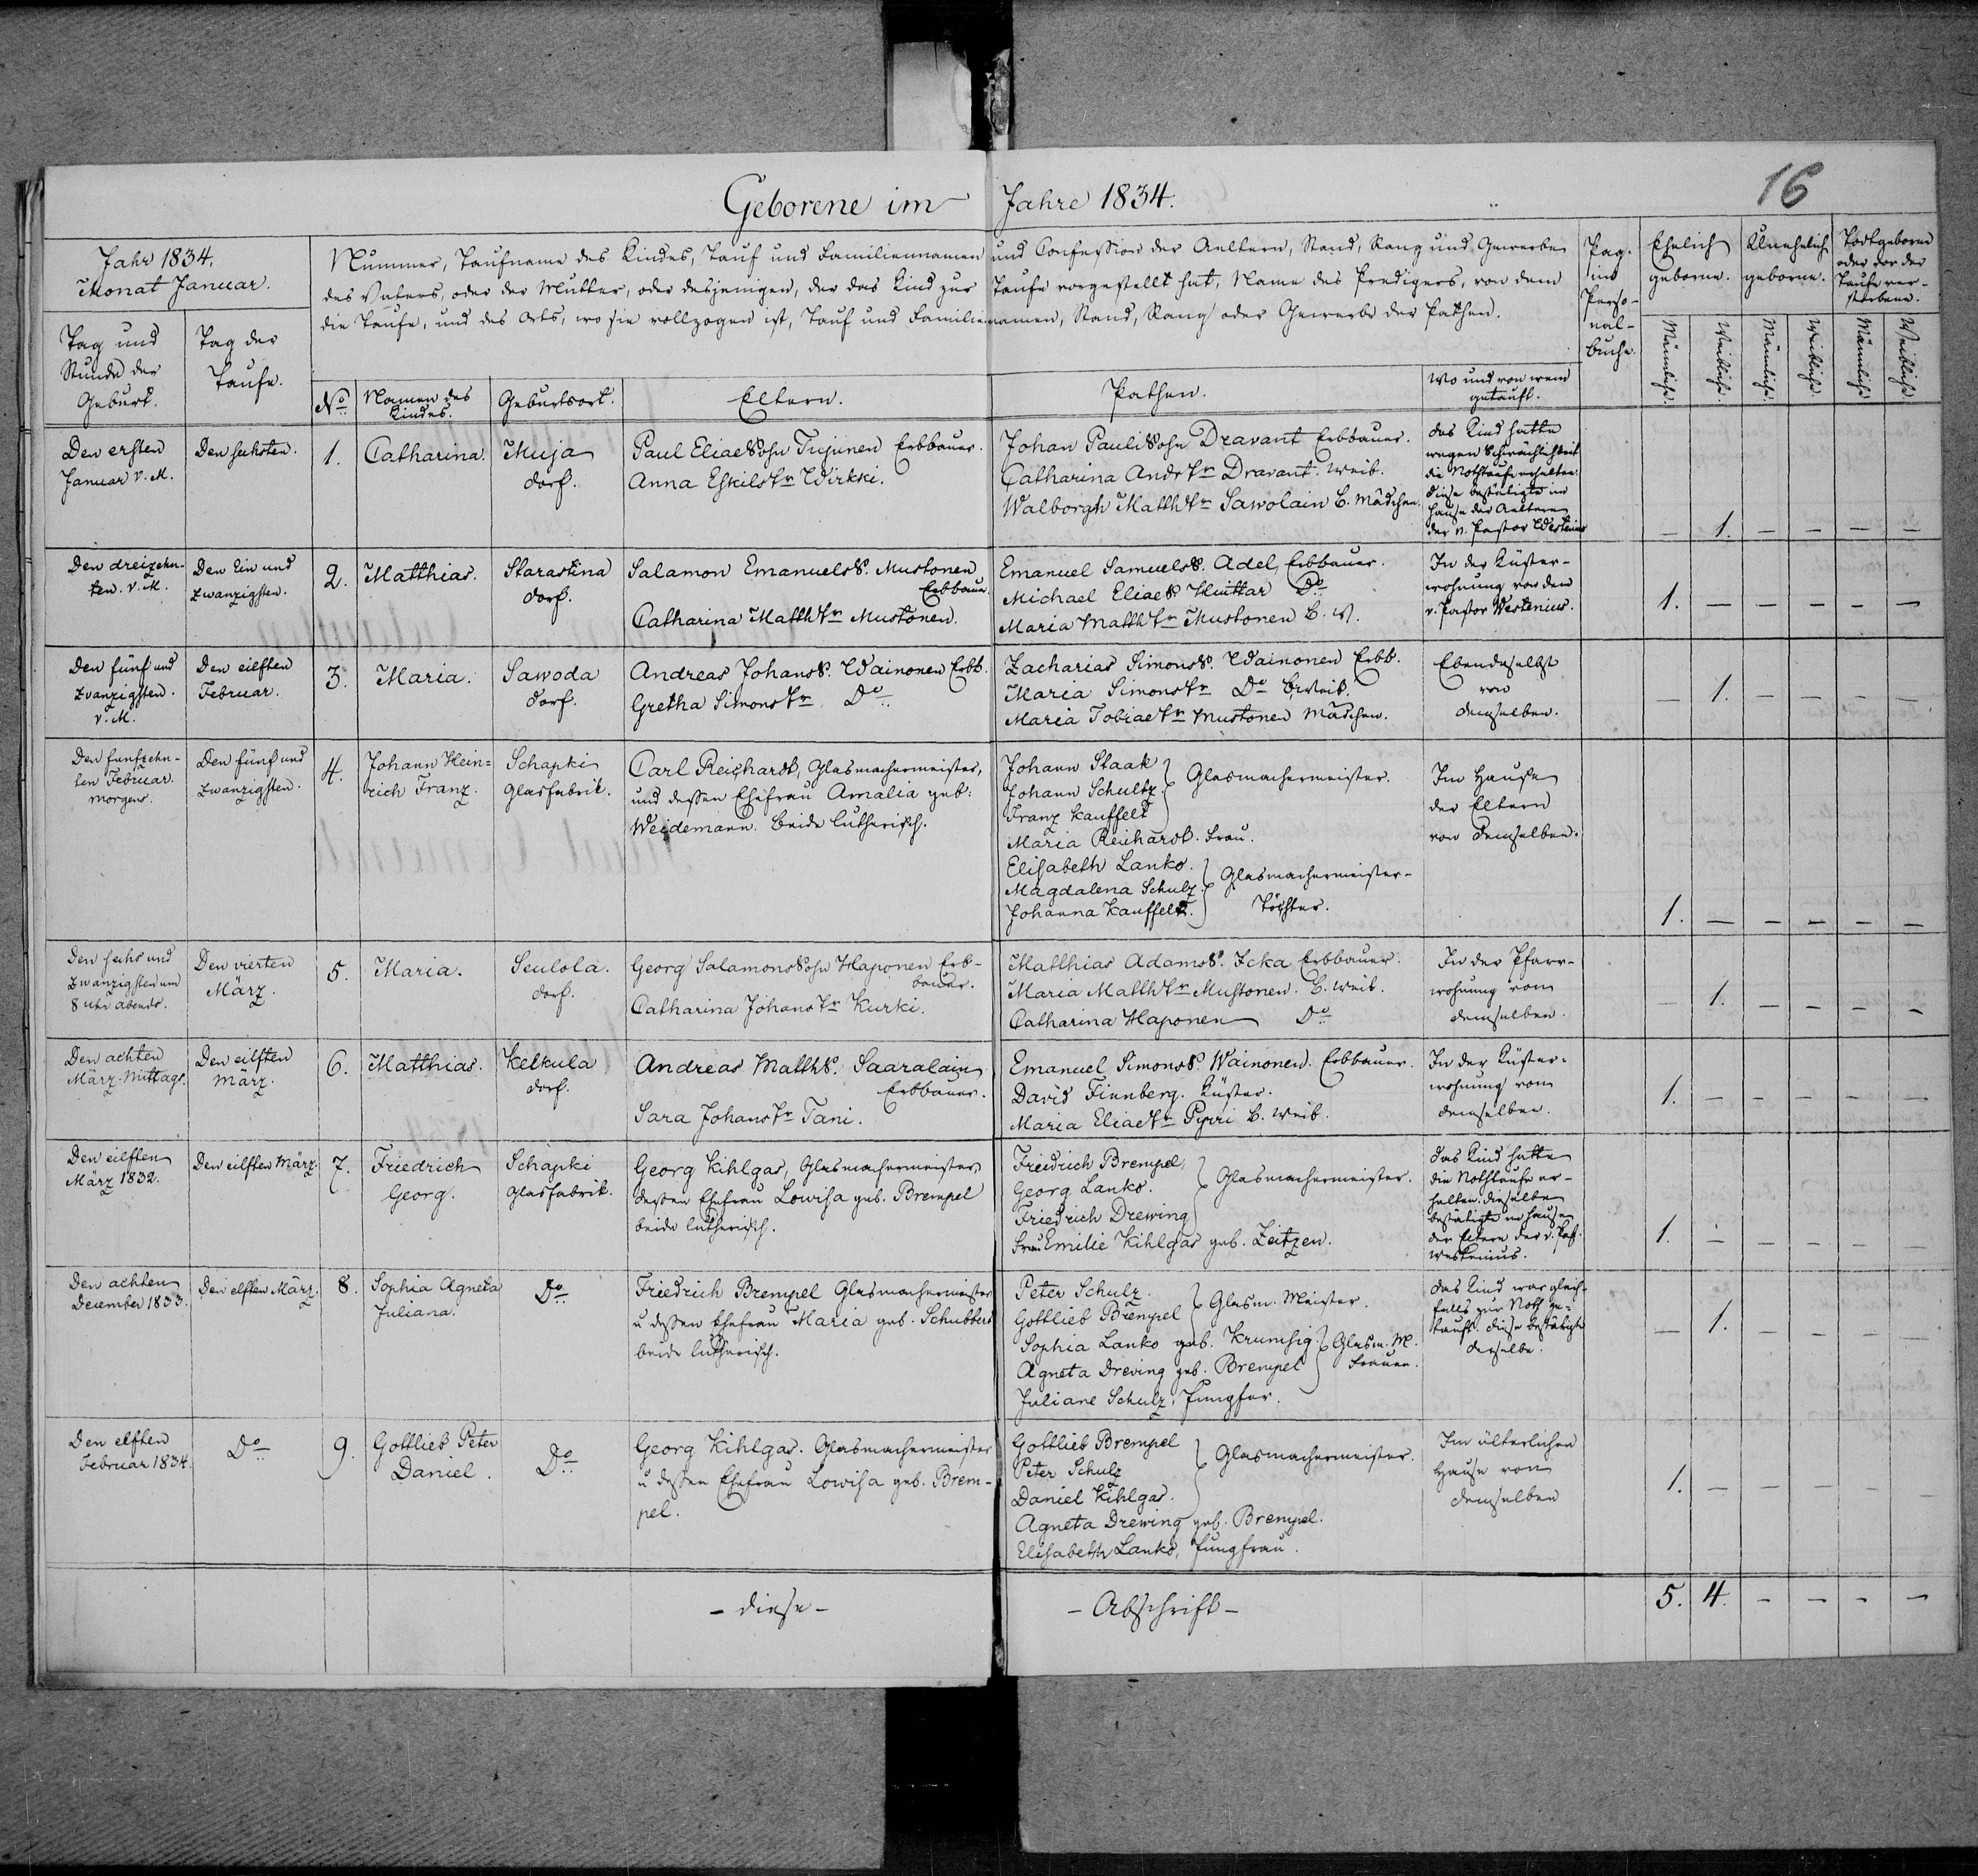 Geborene im Jahre 1834.
16
Jahr 1834.
Monat Januar.
Nummer, Taufname des Kindes, Tauf und Familiennamen und Confession der Aeltern, Stand, Rang und Gewerbe
des Vaters, oder der Mutter, oder desjenigen, der das Kind zur Taufe vorgestellt hat, Name des Predigers, von dem
die Taufe, und des Orts, wo sie vollzogen ist, Tauf und Familiennamen, Stand, Rang oder Gewerbe der Pathen.
Pag.
im
Perso-
nal-
buche.
Ehelich
geborne.
Unehelich
geborne.
Todtgeborne
oder vor der
Taufe ver-
storbene.
Tag und
Stunde der
Geburt.
Tag der
Taufe.
No.
Namen des
Kindes.
Geburtsort.
Eltern.
Pathen.
Wo und von wem
getauft.
Männliche.
Weibliche.
Männliche.
Weibliche.
Männliche.
Weibliche.
Den ersten
Januar v. M.
Den sechsten.
1.
Catharina.
Muja
dorf.
Paul EliaeSohn Tujunen Erbbauer.
Anna EskilsTr Wirkki.
Johan PauliSohn Dravant Erbbauer.
Catharina AndrTr Dravant. Weib.
Walborgh MatthTr Sawolain E. Mädchen.
Das Kind hatte
wegen Schwächlichkeit
die Nothtaufe erhalten.
Diese bestätigte im
Hause der Aeltern
der v. Pastor Westenius
– 1. – – – –
Den dreizehn-
ten. v. M.
Den Ein und
zwanzigsten.
2.
Matthias.
Starastina
dorf.
Salamon EmanuelsS. Mustonen
Erbbauer.
Catharina MatthTr Mustonen.
Emanuel SamuelsS. Adel, Erbbauer.
Michael EliaeS. Huittar Do
Maria MatthTr Mustonen E. W.
In der Küster-
wohnung von dem
v. Pastor Westenius.
1. – – – – –
Den fünf und
zwanzigsten.
v. M.
Den eilften
Februar.
3.
Maria.
Sawoda
dorf.
Andreas JohansS. Wainonen Erbb.
Gretha SimonsTr Do
Zacharias SimonsS. Wainonen Erbb.
Maria SimonsTr Do E. Weib.
Maria TobiaeTr Mustonen Mädchen.
Ebendaselbst
von
demselben.
– 1. – – – –
Den funfzehn-
ten Februar.
Morgens.
Den fünf und
zwanzigsten.
4.
Johann Hein=
rich Franz.
Schapki
Glasfabrik.
Carl Reichardt, Glasmachermeister,
und dessen Ehefrau Amalia geb:
Weidemann. beide lutherisch.
Johann Staak
Johann Schultz
Franz Kauffelt
Glasmachermeister.
Maria Reichardt. Frau.
Elisabeth Lanko.
Magdalena Schulz.
Johanna Kauffelt.
Glasmachermeister-
Töchter.
Im Hause
der Eltern
von demselben.
1. – – – – –
Den sechs und
zwanzigsten um
8 Uhr abends.
Den vierten
März.
5.
Maria.
Seulola.
dorf.
Georg SalamonsSohn Haponen Erb-
bauer.
Catharina JohansTr Kurki.
Matthias AdamsS. Icka Erbbauer.
Maria MatthTr Mustonen. E. Weib.
Catharina Haponen Do
In der Pfarr-
wohnung vom
demselben.
– 1. – – – –
Den achten
März. Mittags.
Den eilften
März.
6.
Matthias.
Kelkula
dorf.
Andreas MatthS. Saaralain
Erbbauer.
Sara JohansTr Tani.
Emanuel SimonsS. Wainonen. Erbbauer.
David Finnberg. Küster.
Maria EliaeTr Pyari E. Weib.
In der Küster=
wohnung vom
demselben.
1. – – – – –
Den eilften
März 1832.
Den eilften März.
7.
Friedrich
Georg.
Schapki
Glasfabrik.
Georg Kihlgas, Glasmachermeister
dessen Ehefrau Lowisa geb. Brempel
beide lutherisch.
Friedrich Brempel,
Georg Lanko.
Friedrich Drewing
Glasmachermeister.
Frau Emilie Kihlgas geb. Zeitzen.
Das Kind hatte
die Nothtaufe er-
halten. dieselbe
bestätigte im Hause
der Eltern der v. Past.
Westenius.
1. – – – –
Den achten
December 1833.
Den elften März.
8.
Sophia Agneta
Juliana.
Do
Friedrich Brempel Glasmachermeister
u dessen Ehefrau Maria geb. Schubbert
beide lutherisch.
Peter Schulz.
Gottlieb Brempel
Glasm. Meister.
Sophia Lanko geb. Krumsig.
Agneta Dreving geb. Brempel
Glasm. M.
Frauen.
Juliane Schulz, Jungfer.
Das Kind war gleich-
falls zur Noth ge-
tauft. Diese bestätigte
derselbe.
– 1. – – – –
Den elften
Februar 1834.
Do
9.
Gottlieb Peter
Daniel.
Do
Georg Kihlgas. Glasmachermeister
u dessen Ehefrau Lowisa geb. Brem-
pel.
Gottlieb Brempel
Peter Schulz
Daniel Kihlgas.
Glasmachermeister.
Agneta Drewing geb. Brempel.
Elisabeth Lanko, Jungfrau.
Im älterlichen
Hause von
demselben
1. – – – – –
– diese –
– Abschrift –
5. 4. – – – –